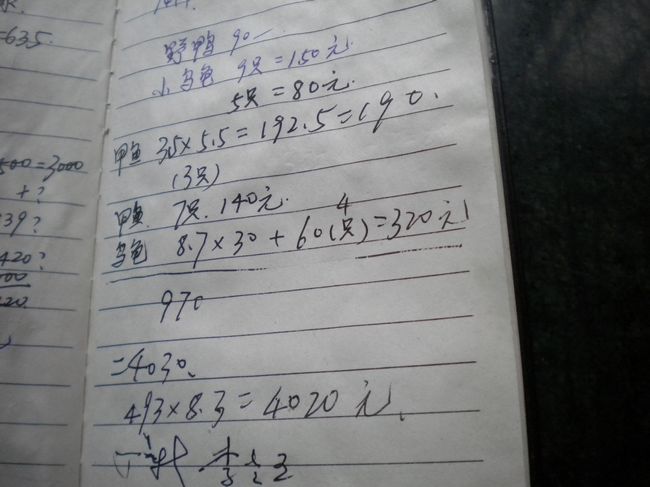 =635.
500=3000
+?
39?
420?
00
220
野鸭 90一
小乌龟 9只=150元.
5只=80元.
甲鱼 35×5.5=192.5=190.
(3只)
甲鱼 7只.140元.
4
乌龟 8.7×30+60(只)=320元
970
=4030、
493×8.3=4020元、